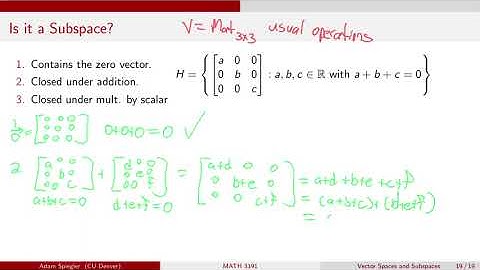 Is it a Subspace?
V = Mat 3x3 usual operations
1. Contains the zero vector.
2. Closed under addition.
3. Closed under mult. by scalar
H = { [ a 0 0 ; 0 b 0 ; 0 0 c ] : a, b, c ∈ ℝ with a + b + c = 0 }
1. 0 = [ 0 0 0 ; 0 0 0 ; 0 0 0 ] 0+0+0=0 ✓
2. [ a 0 0 ; 0 b 0 ; 0 0 c ] + [ d 0 0 ; 0 e 0 ; 0 0 f ] = [ a+d 0 0 ; 0 b+e 0 ; 0 0 c+f ] = a+d+b+e+c+f
a+b+c=0 d+e+f=0 = (a+b+c)+(d+e+f)
=
Adam Spiegler (CU Denver) MATH 3191 Vector Spaces and Subspaces 19 / 19